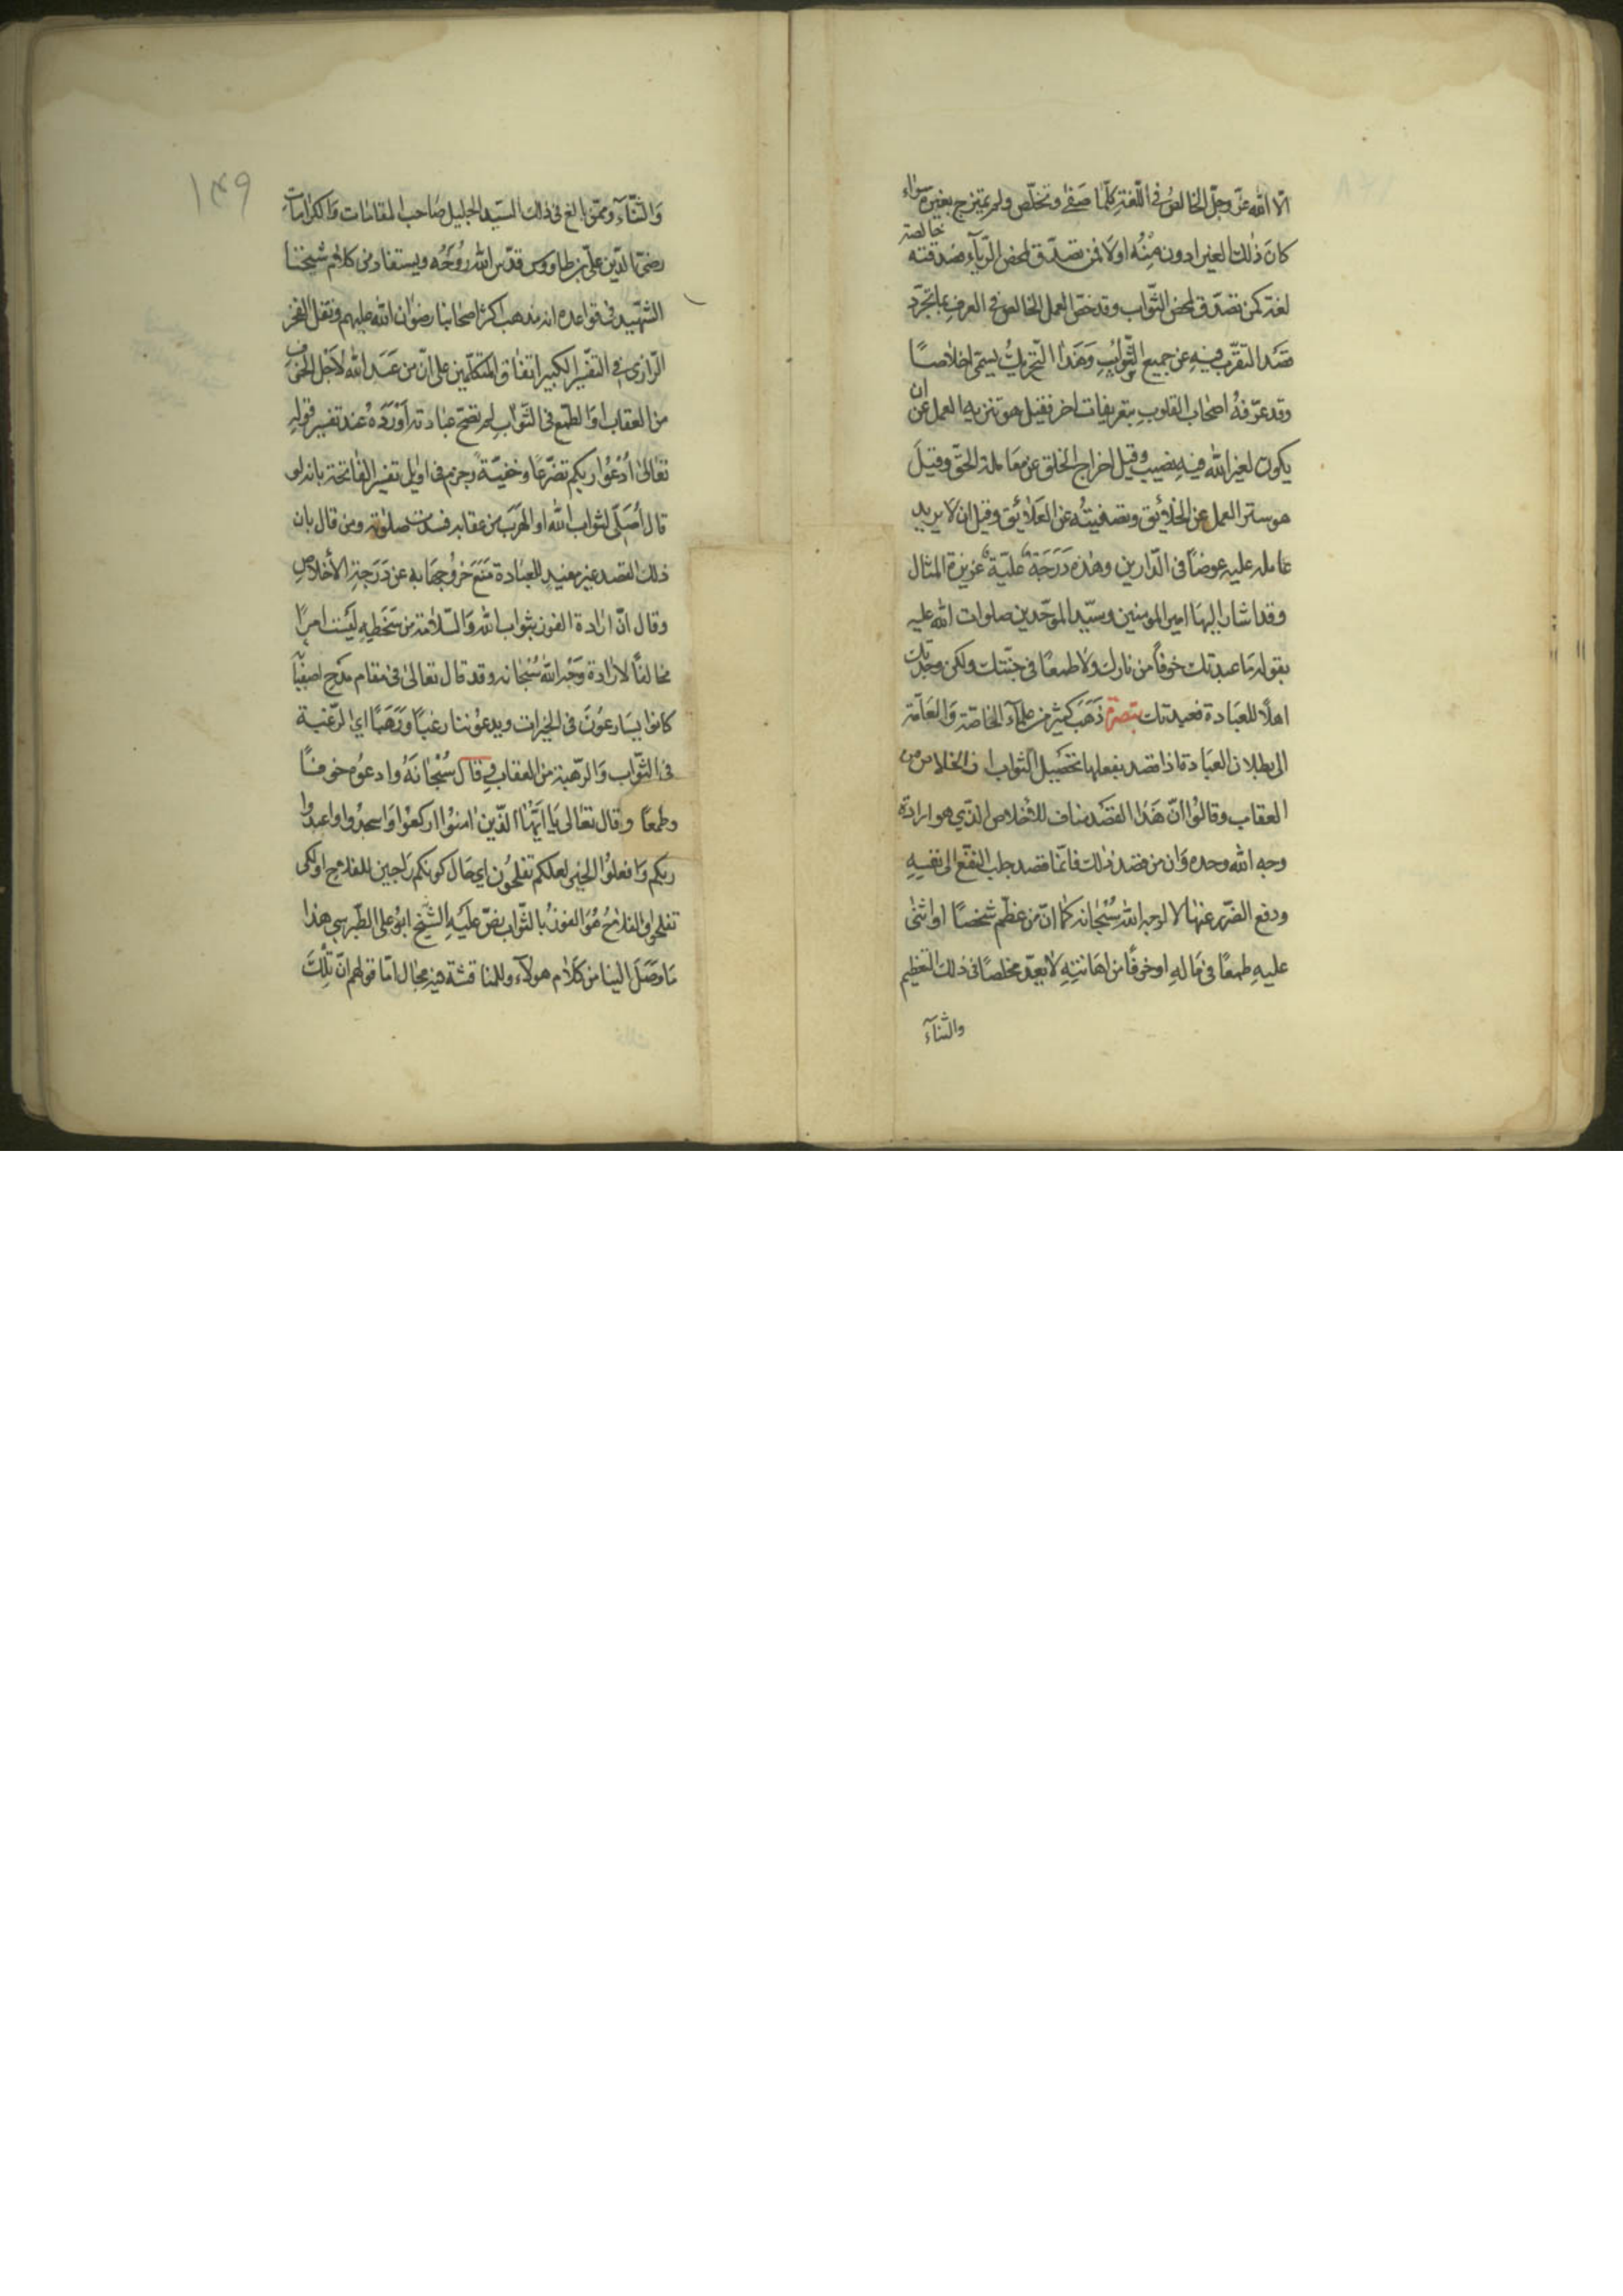 الّا الله عزّ وجلّ الخالصُ في اللّغة كلّما صَفىٰ وتخلّص ولم يمتزج بغيره سوٰاء
كانَ ذٰلك الغير ادون مِنْهُ او لا فمن تصدّق لمحض الرّيآء فصدقته خالصة
لغة كمن تصدّق لمحض الثّواب وقد خصّ العمل الخالص في العرفِ بما تجرّد
قصَد التقرّب فيهِ عن جميع الشّوائبِ وَهَذا التّجريدُ يسمّى اخلاصًا
وقد عرّفهُ اصحٰاب القلوبِ بتعريفات اخر فقيل هو تنزيه العمل عن ان
يكون لغير الله فيهِ نصيب وقيل اخراج الخلق عن معَاملة الحقّ وقيلَ
هو ستر العمل عن الخلٰائق وتصفيتُه عن العَلٰائق وقيل ان لا يريد
عٰامله عليه عوضًا في الدّارين وهٰذه دَرَجَةٌ عليّةٌ عزيزة المثال
وقد اشار اليهَا امير المومنين وسيّد الموحّدين صلوات الله عليه
بقوله مٰا عبدتك خوفاً من نارك ولا طمعًا في جنّتك ولكن وجدتك
اهلًا للعبَادة فعبدتك تبصرة ذَهَبَ كثير من علمآء الخاصّة وَالعَامّة
الى بطلان العبَادة اذا قصد بفعلها تحصيل الثواب او الخلاص من
العقاب وقالوُا انّ هَذا القصَد مناف للاخلاص الذّي هو ارادة
وجه الله وحده وَان من قصد ذٰلك فانّما قصد جلب النّفع الى نفسِهِ
ودفع الضّرر عنهٰا لا لوجه الله سُبْحٰانه كما انّ من عظّم شخصًا او اثنىٰ
عليهِ طمعًا في مَالهِ او خوفًا من اهانتِهِ لا يعدّ مخلصًا في ذلك التعظيم
والثنآء
١٤٩
وَالثّنآء وممّن بالغ في ذلك السّيد الجليل صٰاحب المقامٰات وَالكرامٰات
رضيّ الدّين عليّ بن طاووس قدّس الله رُوُحَهُ ويستفاد من كلٰام شيخنا
الشّهيد في قواعده انه مذهب اكثر اصحابنا رضوٰان الله عليهم ونقل الفخر
الرّازي في التفسير الكبير اتفاق المتكلّمين على انّ من عَبَد الله لاَجل الخوف
من العقاب اوَ الطمع في الثّواب لم تصّح عبٰادته اَوْرَدَهُ عند تفسير قولِهِ
تعٰالىٰ اُدْعُوا ربكم تضرّعًا وخفيةً وجزم في اوٰايل تفسير الفٰاتحة بانه لو
قال اُصَلّي لثواب الله او الهَرَب من عقابه فسدت صلوته ومن قال بان
ذلك القصد غير مفسِدٍ للعبَادة مَنَعَ خروُجهَا به عن دَرَجة الاخلاصِ
وقال انّ ارٰادة الفوز بثواب الله وَالسّلٰامة من سَخَطِهِ ليَسَت امرًا
مخالفًا لارٰادة وَجْه الله سُبْحٰانه وقد قال تعٰالىٰ في مقام مَدْحِ اصفيٰآئه
كٰانوا يسَارعوُنَ في الخيرات ويدعوُننا رغبًا وَرَهَبًا اي لرّغبة
في الثّواب وَالرّهبة من العقاب قالَ سُبْحٰانَهُ وادعوُه خوفًا
وطمعًا وقال تعٰالىٰ يَا اَيّهٰا الذّين اٰمنوُا اركعوُا وَاسجدُوا واعبدوُا
ربكم وَافعلوُا الخير لعلكم تفلحُون اي حَال كونكم رَاجين للفلٰاح او لكي
تفلحوا والفلٰاحُ هُوَ الفوزُ بالثّوٰاب نصّ عَلَيْهِ الشّيخ ابوُ علي الطّبرسي هذا
مَا وَصَلَ الينا من كلَام هؤلآء وللمناقشة فيه مجٰال امّا قولهم انّ تلكَ